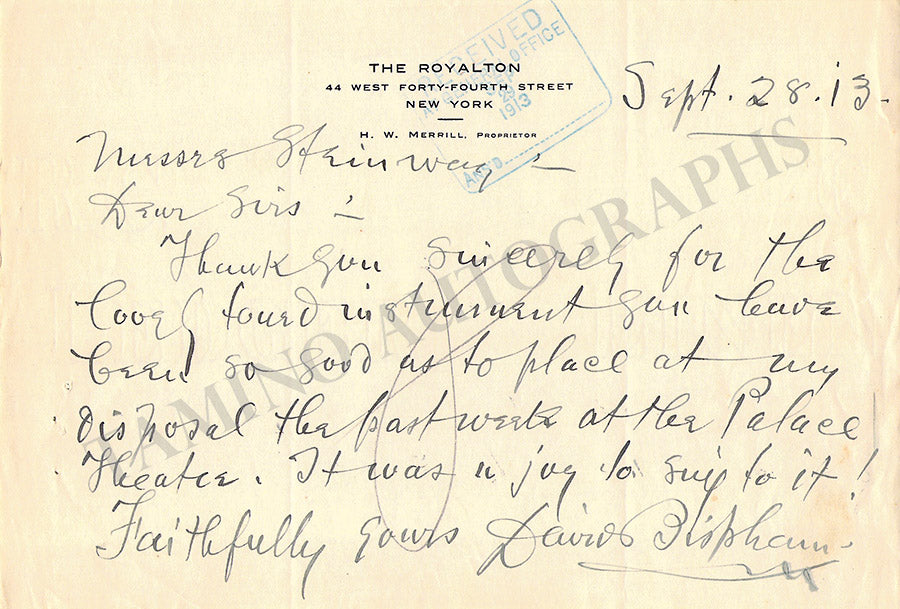 THE ROYALTON
44 WEST FORTY-FOURTH STREET
NEW YORK
H. W. MERRILL, PROPRIETOR
RECEIVED
OFFICE
SEP
29
1913
ANS'D
Sept. 28. 13.
Messrs Steinway:-
Dear Sirs :-
Thank you sincerely for the
lovely toned instrument you have
been so good as to place at my
disposal the past week at the Palace
Theatre. It was a joy to sing to it!
Faithfully yours David Bispham.
TAMINO AUTOGRAPHS